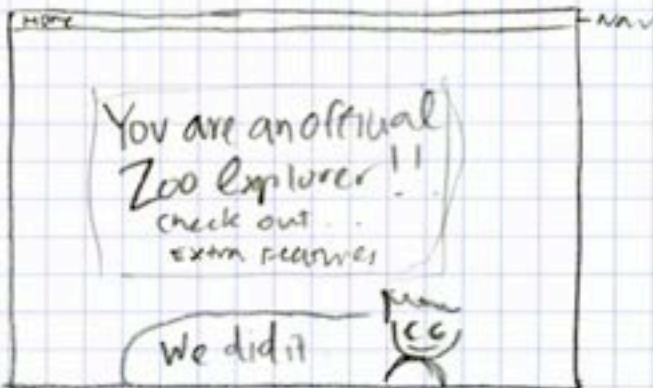 HOME
NAV
You are an official
Zoo Explorer!!
check out...
Extra Features
We did it